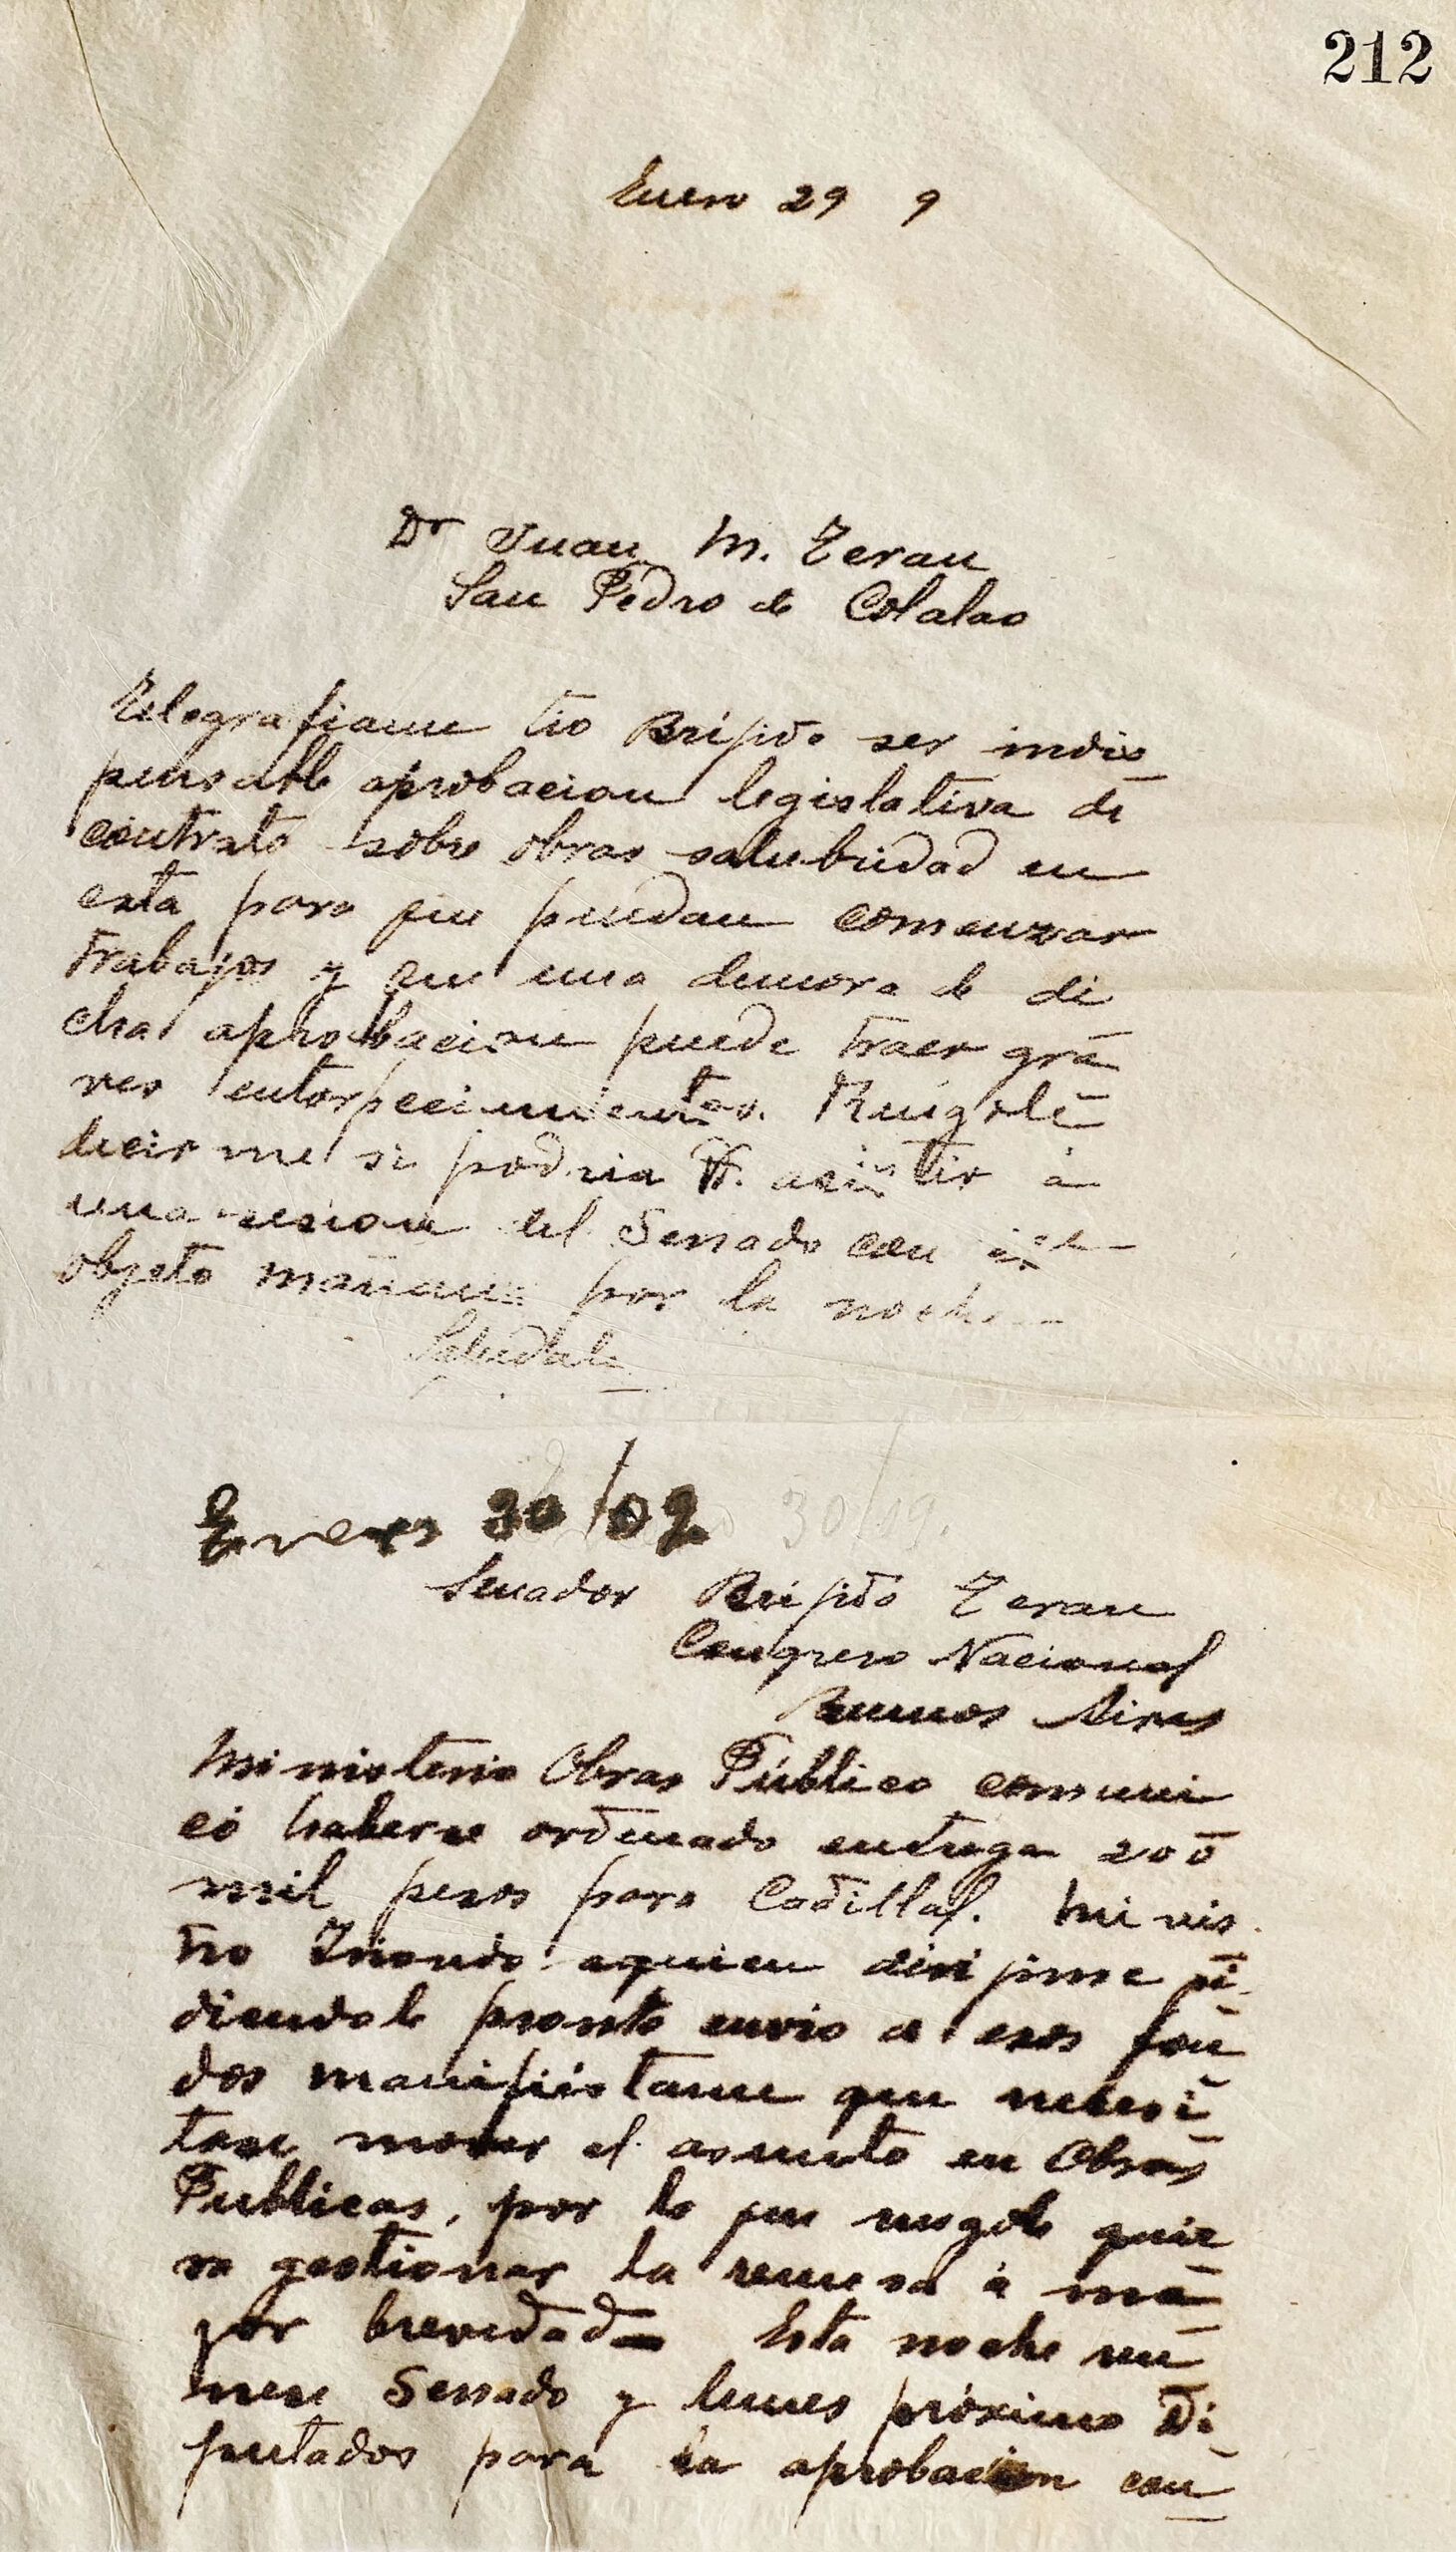 212
Enero 29 9
Dr Juan M. Teran
San Pedro de Colalao
Telegrafiame tio Brijido ser indis
pensable aprobacion legislativa de
contrato sobre obras salubridad en
esta para que puedan comenzar
trabajos y que una demora de di
cha aprobacion puede traer gra
ves entorpecimientos. Ruégole
decirme si podria V. asistir á
una sesion del Senado con ese
objeto mañana por la noche
Salúdale
Enero 30/09
Senador Brijido Teran
Congreso Nacional
Buenos Aires
Ministerio Obras Público comuni
có haberse ordenado entrega 200
mil pesos para Cadillal. Minis
tro Iriondo aquien dirijime pi
diendole pronto envio de esos fon
dos manifiéstame que necesi
tase mover el asunto en Obras
Publicas, por lo que ruegole quie
ra gestionar la remesa á ma
yor brevedad— Esta noche reu
nese Senado y lunes próximo Di
putados para la aprobacion con